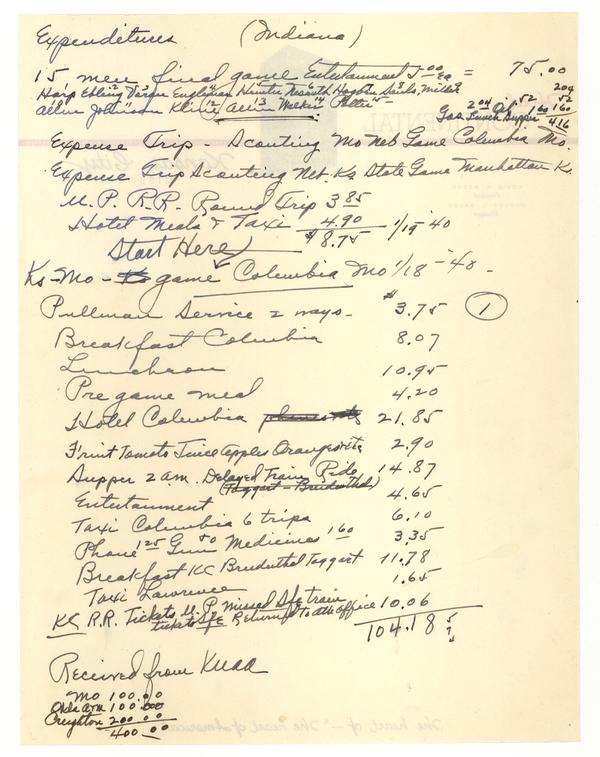 Expenditures (Indiana)
15 men final game Entertainment 5.00 ea = 75.00
Harp Ebling Voran Engleman Hunter Nesmith Hogben Sands, Miller
Allen Johnson Kline 12 Allen 13 Weekins 14 Potter 15
204
52
160
416
Gas 2.04 Oil .52 Lunch 1.60 Supper 1.60
Expense Trip - Scouting Mo Neb Game Columbia Mo.
Expense Trip Scouting Neb. Ks State Game Manhattan Ks.
U.P. R.R. Round Trip 3.85
Hotel Meals & Taxi 4.90 1/19-40
$8.75
Start Here
Ks-Mo - game Columbia Mo 1/18-40 -
Pullman Service 2 ways - $3.75 (1)
Breakfast Columbia 8.07
Luncheon 10.95
Pre game meal 4.20
Hotel Columbia 21.85
Fruit Tomato Juice apples Oranges 2.90
Supper 2 am. Delayed Train Ride 14.87
(Taggart - Bruduthal)
Entertainment 4.65
Taxi Columbia 6 trips 6.10
Phone 1.25 Gum 50 Medicines 1.60 3.35
Breakfast KC Bruduthal Taggart 11.78
Taxi Lawrence 1.65
KC R.R. Tickets U.P. missed Sfe train
tickets Sfe Return to ath office 10.06
104.18
Received from KUAA
Mo 100.00
Okla A&M 100.00
Creighton 200.00
400.00